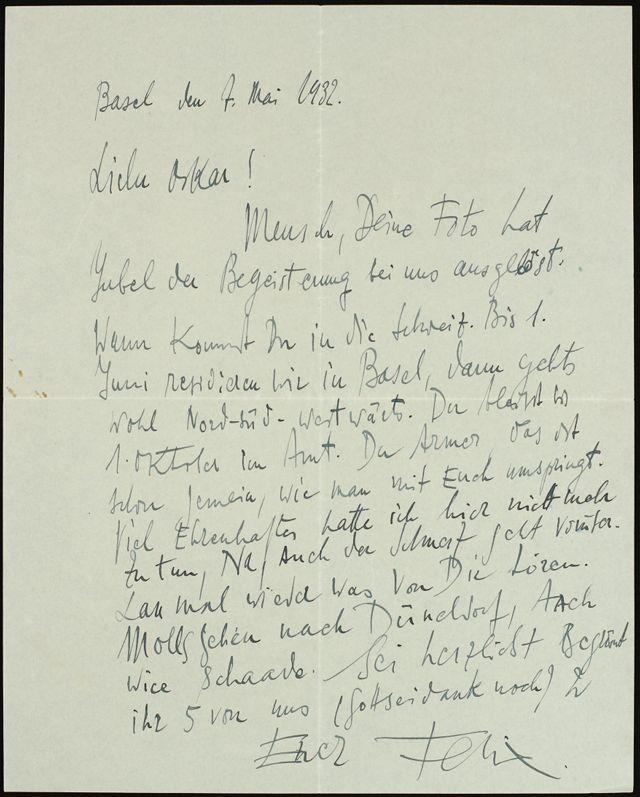 Basel den 7. Mai 1932.
Lieber Oskar!
Mensch, Deine Foto hat
Jubel der Begeisterung bei uns ausgelöst.
Wann kommst Du in die Schweiz. Bis 1.
Juni residieren wir in Basel, dann gehts
wohl Nord-süd-westwärts. Du bleibst bis
1. Oktober im Amt. Du Armer, das ist
schon gemein, wie man mit Euch umspringt.
Viel Ehrenhaftes hatte ich hier nicht mehr
zu tun, Na, Auch der Schmerz geht vorüber.
Lass mal wieder was von Dir hören.
Molls gehen nach Düsseldorf, Auch
wice Schaade. Sei herzlichst Begrüsst
ihr 5 von uns (Gottseidank noch) 2
Euer Felix.